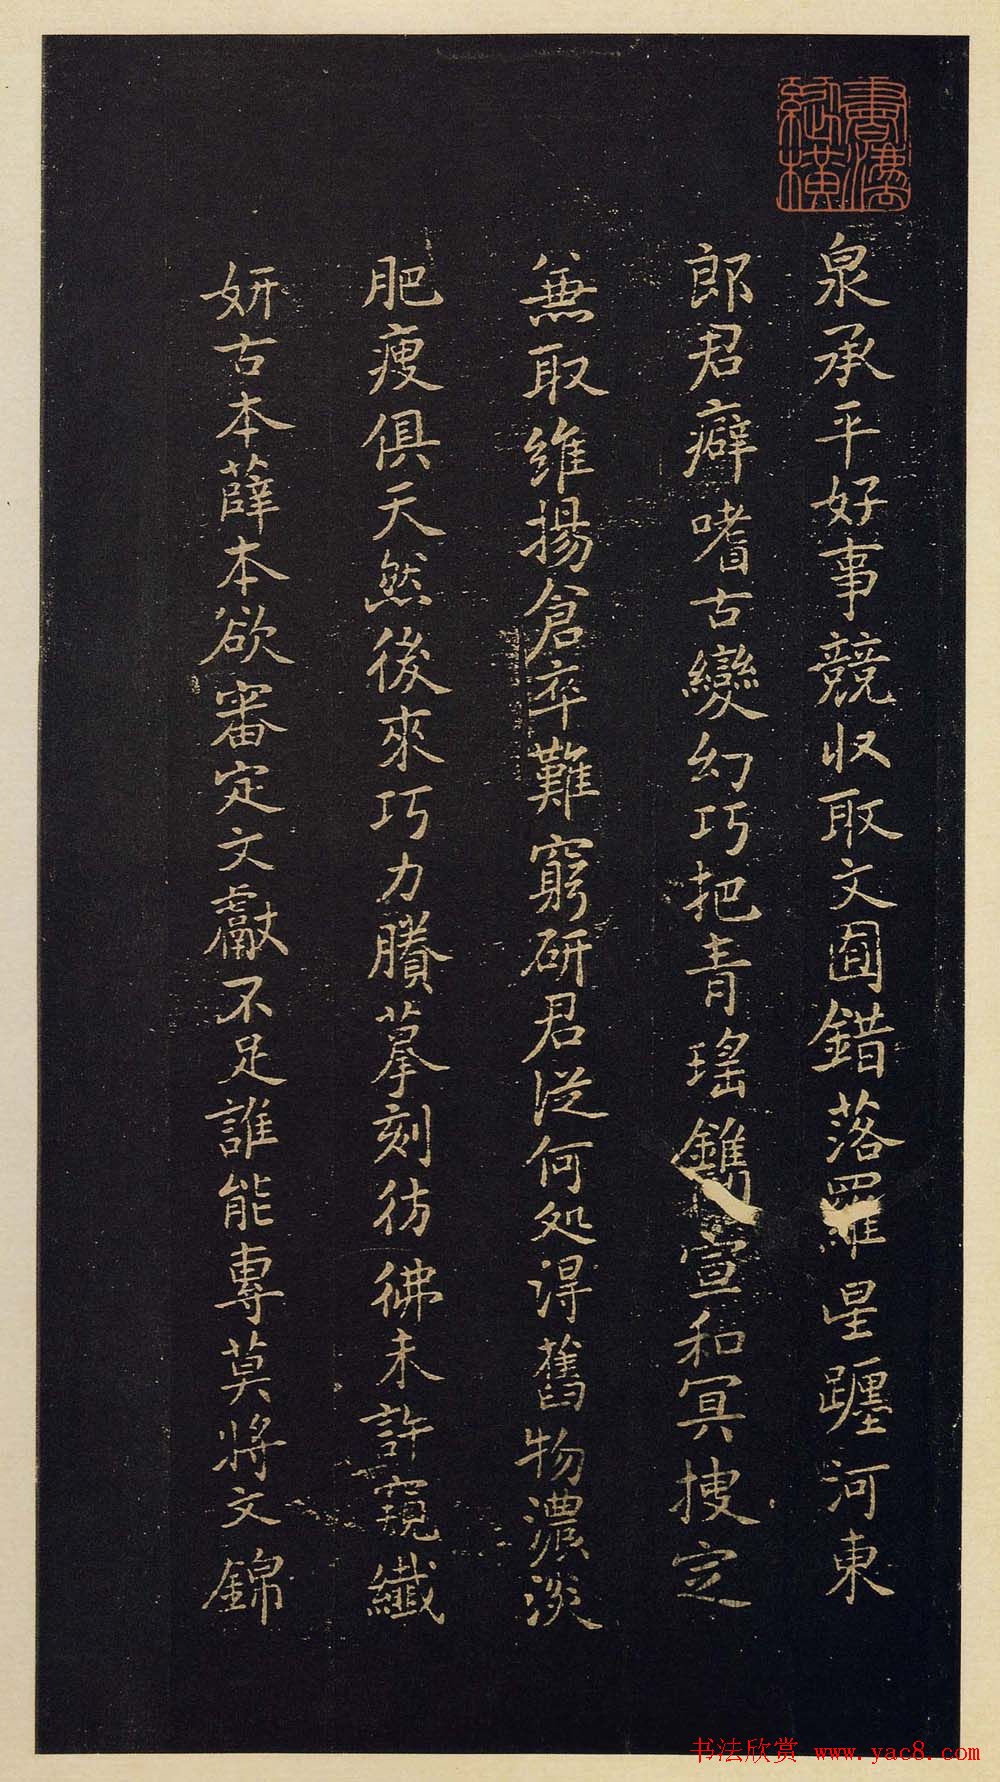 泉承平好事競収取文圓錯落羅星躔河東
郎君癖嗜古變幻巧把青瑤鐫宣和冥搜定
兼取維揚倉卒難窮研君從何処得舊物濃淡
肥瘦俱天然後來巧力賸摹刻彷彿未許窺纖
妍古本薛本欲審定文獻不足誰能專莫將文錦
书法欣赏 www.yac8.com